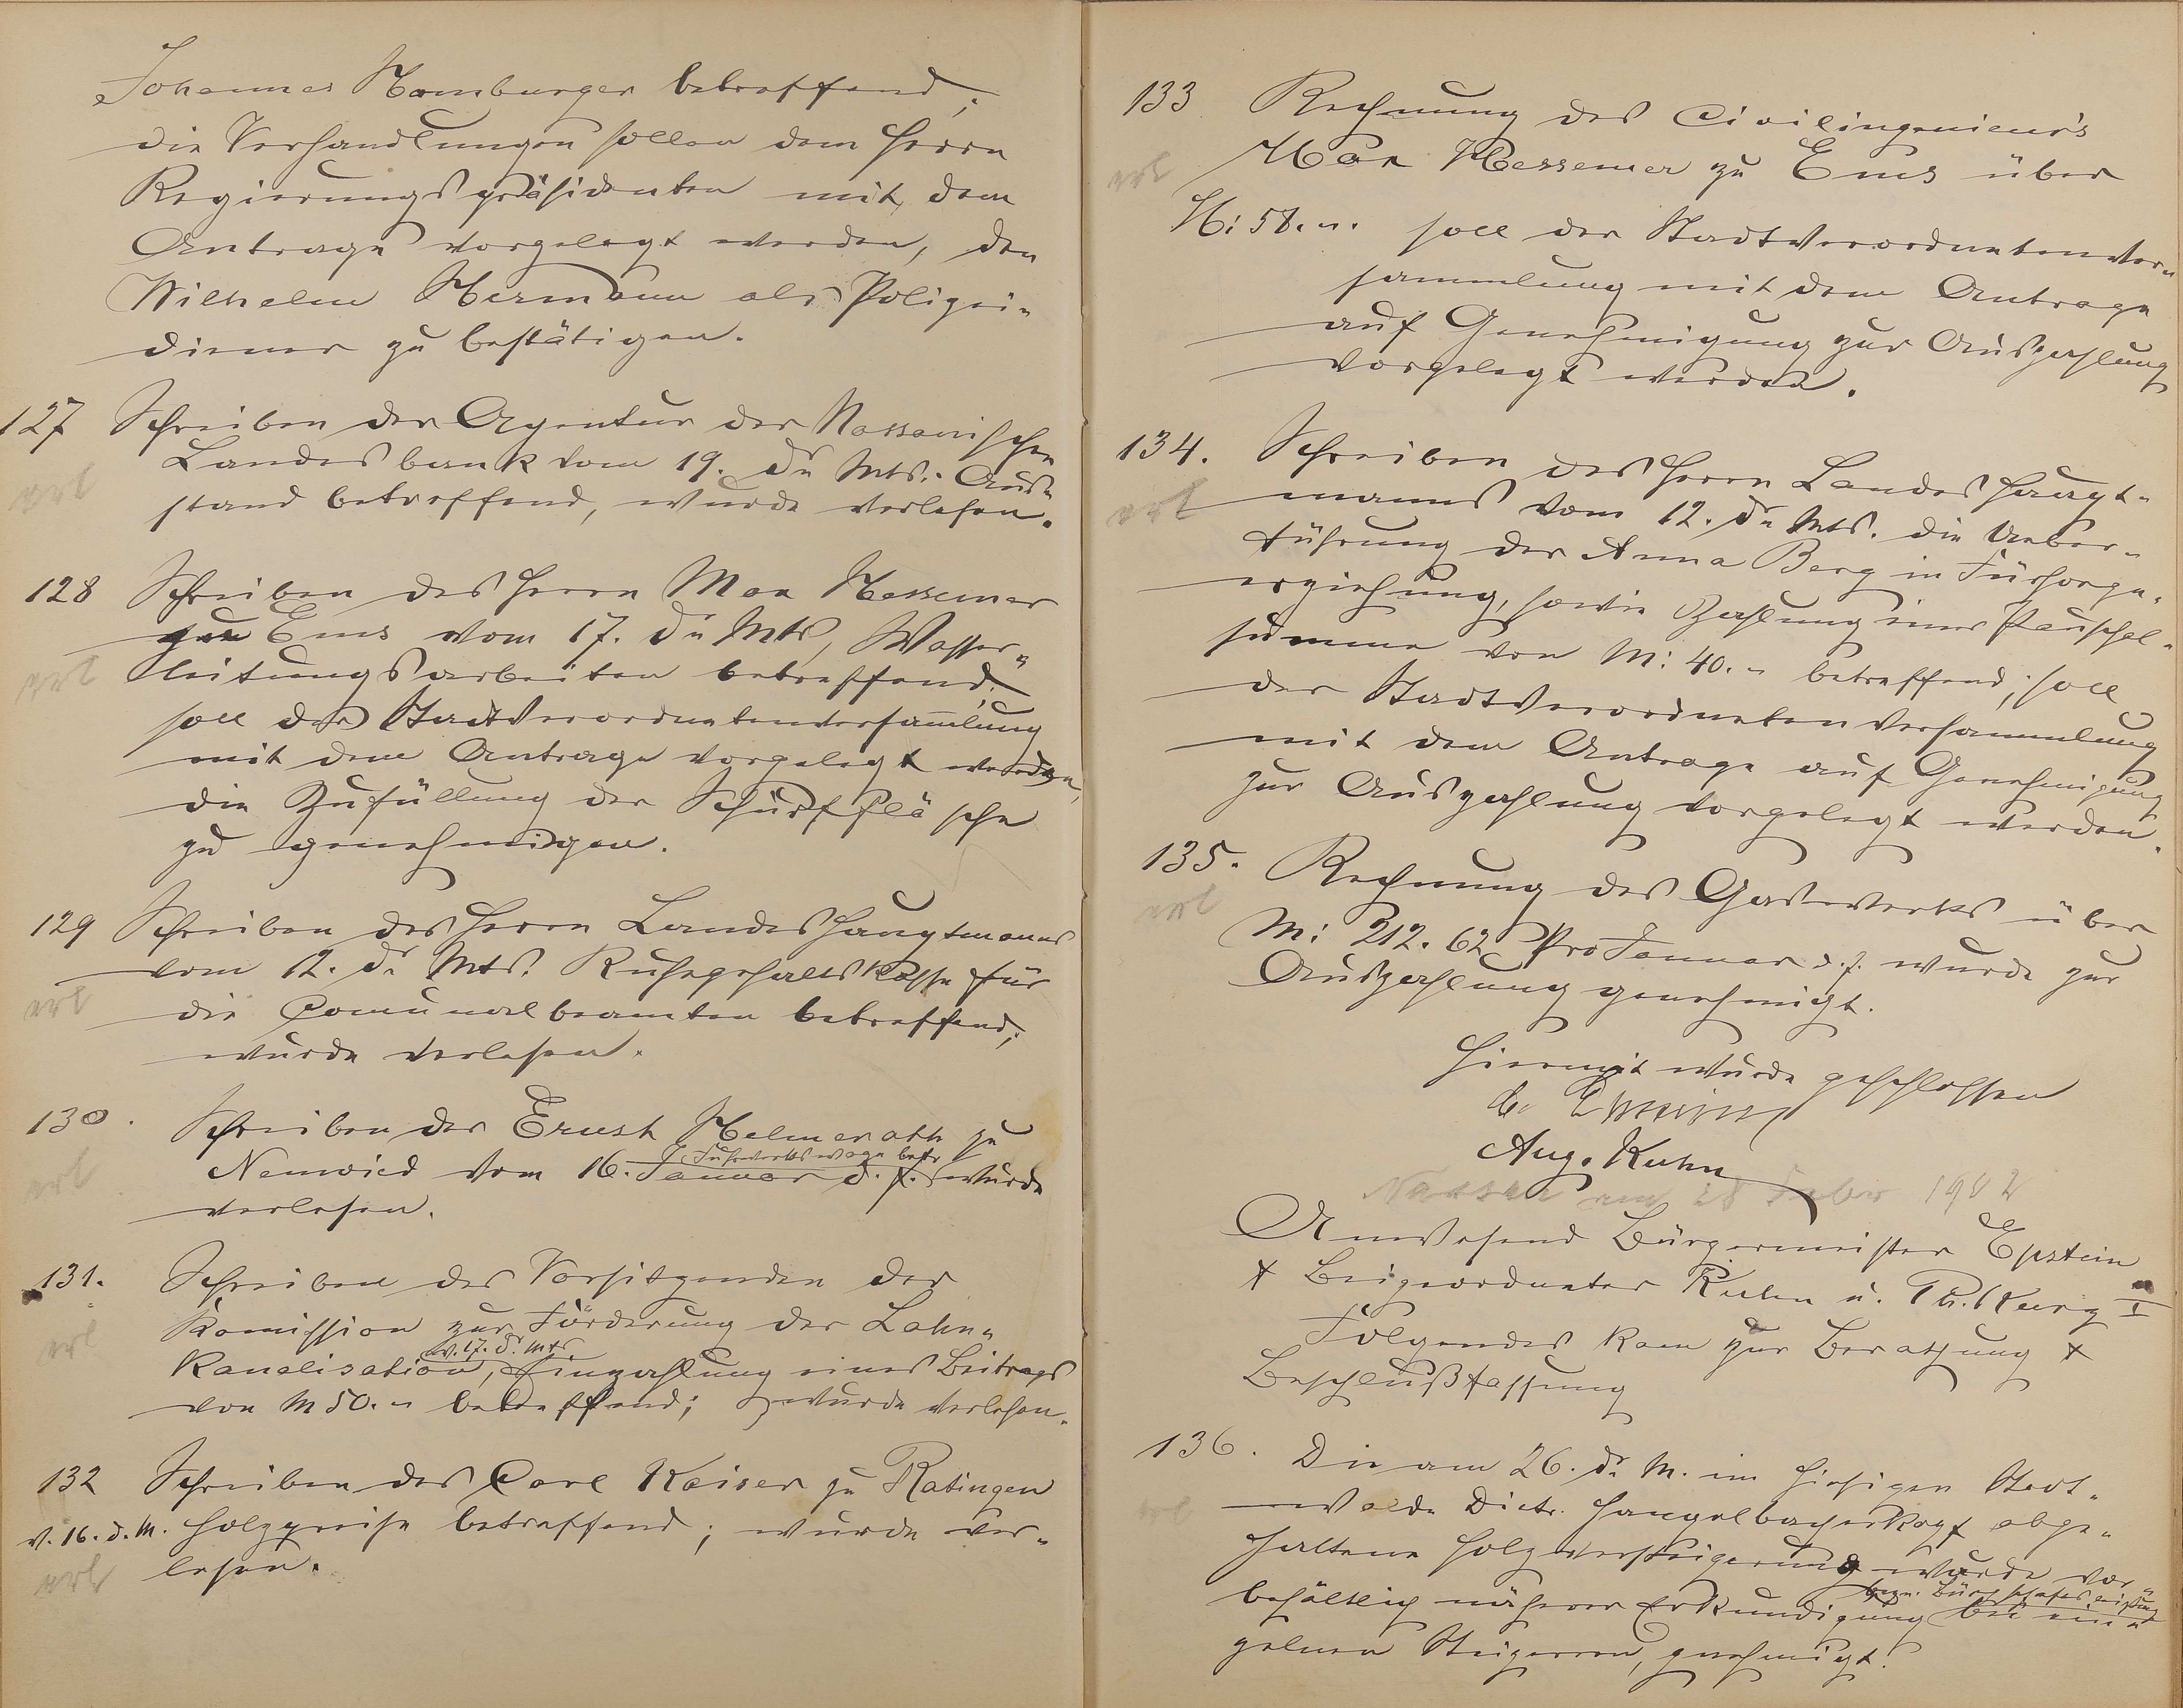 Johannes Homburger betreffend;
die Verhandlungen sollen dem Herrn
Regierungspräsidenten mit dem
Antrage vorgelegt werden, den
Wilhelm Hermann als Polizei-
diener zu bestätigen.
127 Schreiben der Agentur der Nassauischen
erl
Landesbank vom 19. ds Mts. Aus-
stand betreffend, wurde verlesen.
128 Schreiben des Herrn Max Hessemer
zu Ems vom 17. ds Mts, Wasser-
erl
leitungsarbeiten betreffend;
soll der Stadtverordnetenversammlung
mit dem Antrage vorgelegt werden,
die Zufüllung der Schürffläche
zu genehmigen.
129 Schreiben des Herrn Landeshauptmanns
vom 12. ds Mts. Ruhegehaltskasse für
erl
die Communalbeamten betreffend;
wurde verlesen.
130. Schreiben des Ernst Helmerath zu
Fuhrwerkswage betr
erl
Neuwied vom 16. Januar d. J. wurde
verlesen.
131. Schreiben des Vorsitzenden der
Komission zur Förderung der Lahn-
erl
v. 17. ds. Mts
Kanalisation, Einzahlung eines Beitrags
von M 50.- betreffend; wurde verlesen.
132 Schreiben des Carl Kaiser zu Ratingen
v. 16. d. M. Holzpreise betreffend; wurde ver-
erl
lesen.
133 Rechnung des Civilingenieur's
erl
Max Hessemer zu Ems über
M: 58.-. soll der Stadtverordnetenver-
sammlung mit dem Antrage
auf Genehmigung zur Auszahlung
vorgelegt werden.
134. Schreiben des Herrn Landeshaupt-
erl
manns vom 12. ds Mts. die Ueber-
führung der Anna Berg in Fürsorge-
erziehung, sowie Zahlung einer Pauschal-
summe von M: 40.- betreffend; soll
der Stadtverordnetenversammlung
mit dem Antrage auf Genehmigung
zur Auszahlung vorgelegt werden.
135. Rechnung des Gaswerks über
erl
M: 212.62 Pro Januar d. J. wurde zur
Auszahlung genehmigt.
Hiermit wurde geschlossen
Aug. Kuhn
Nassau am 28 Febr 1902
Anwesend Bürgermeister Epstein
& Beigeordneter Kuhn u. Ph. Kurz I
Folgendes kam zur Berathung &
Beschlußfassung
136. Die am 26. ds. M. im hiesigen Stadt-
erl
walde Distr. Hangelbacherkopf abge-
haltene Holzversteigerung wurde vor-
bezw. Bürgschaftsleistung
behältlich näherer Erkundigung bei ein-
zelnen Steigerern, genehmigt.